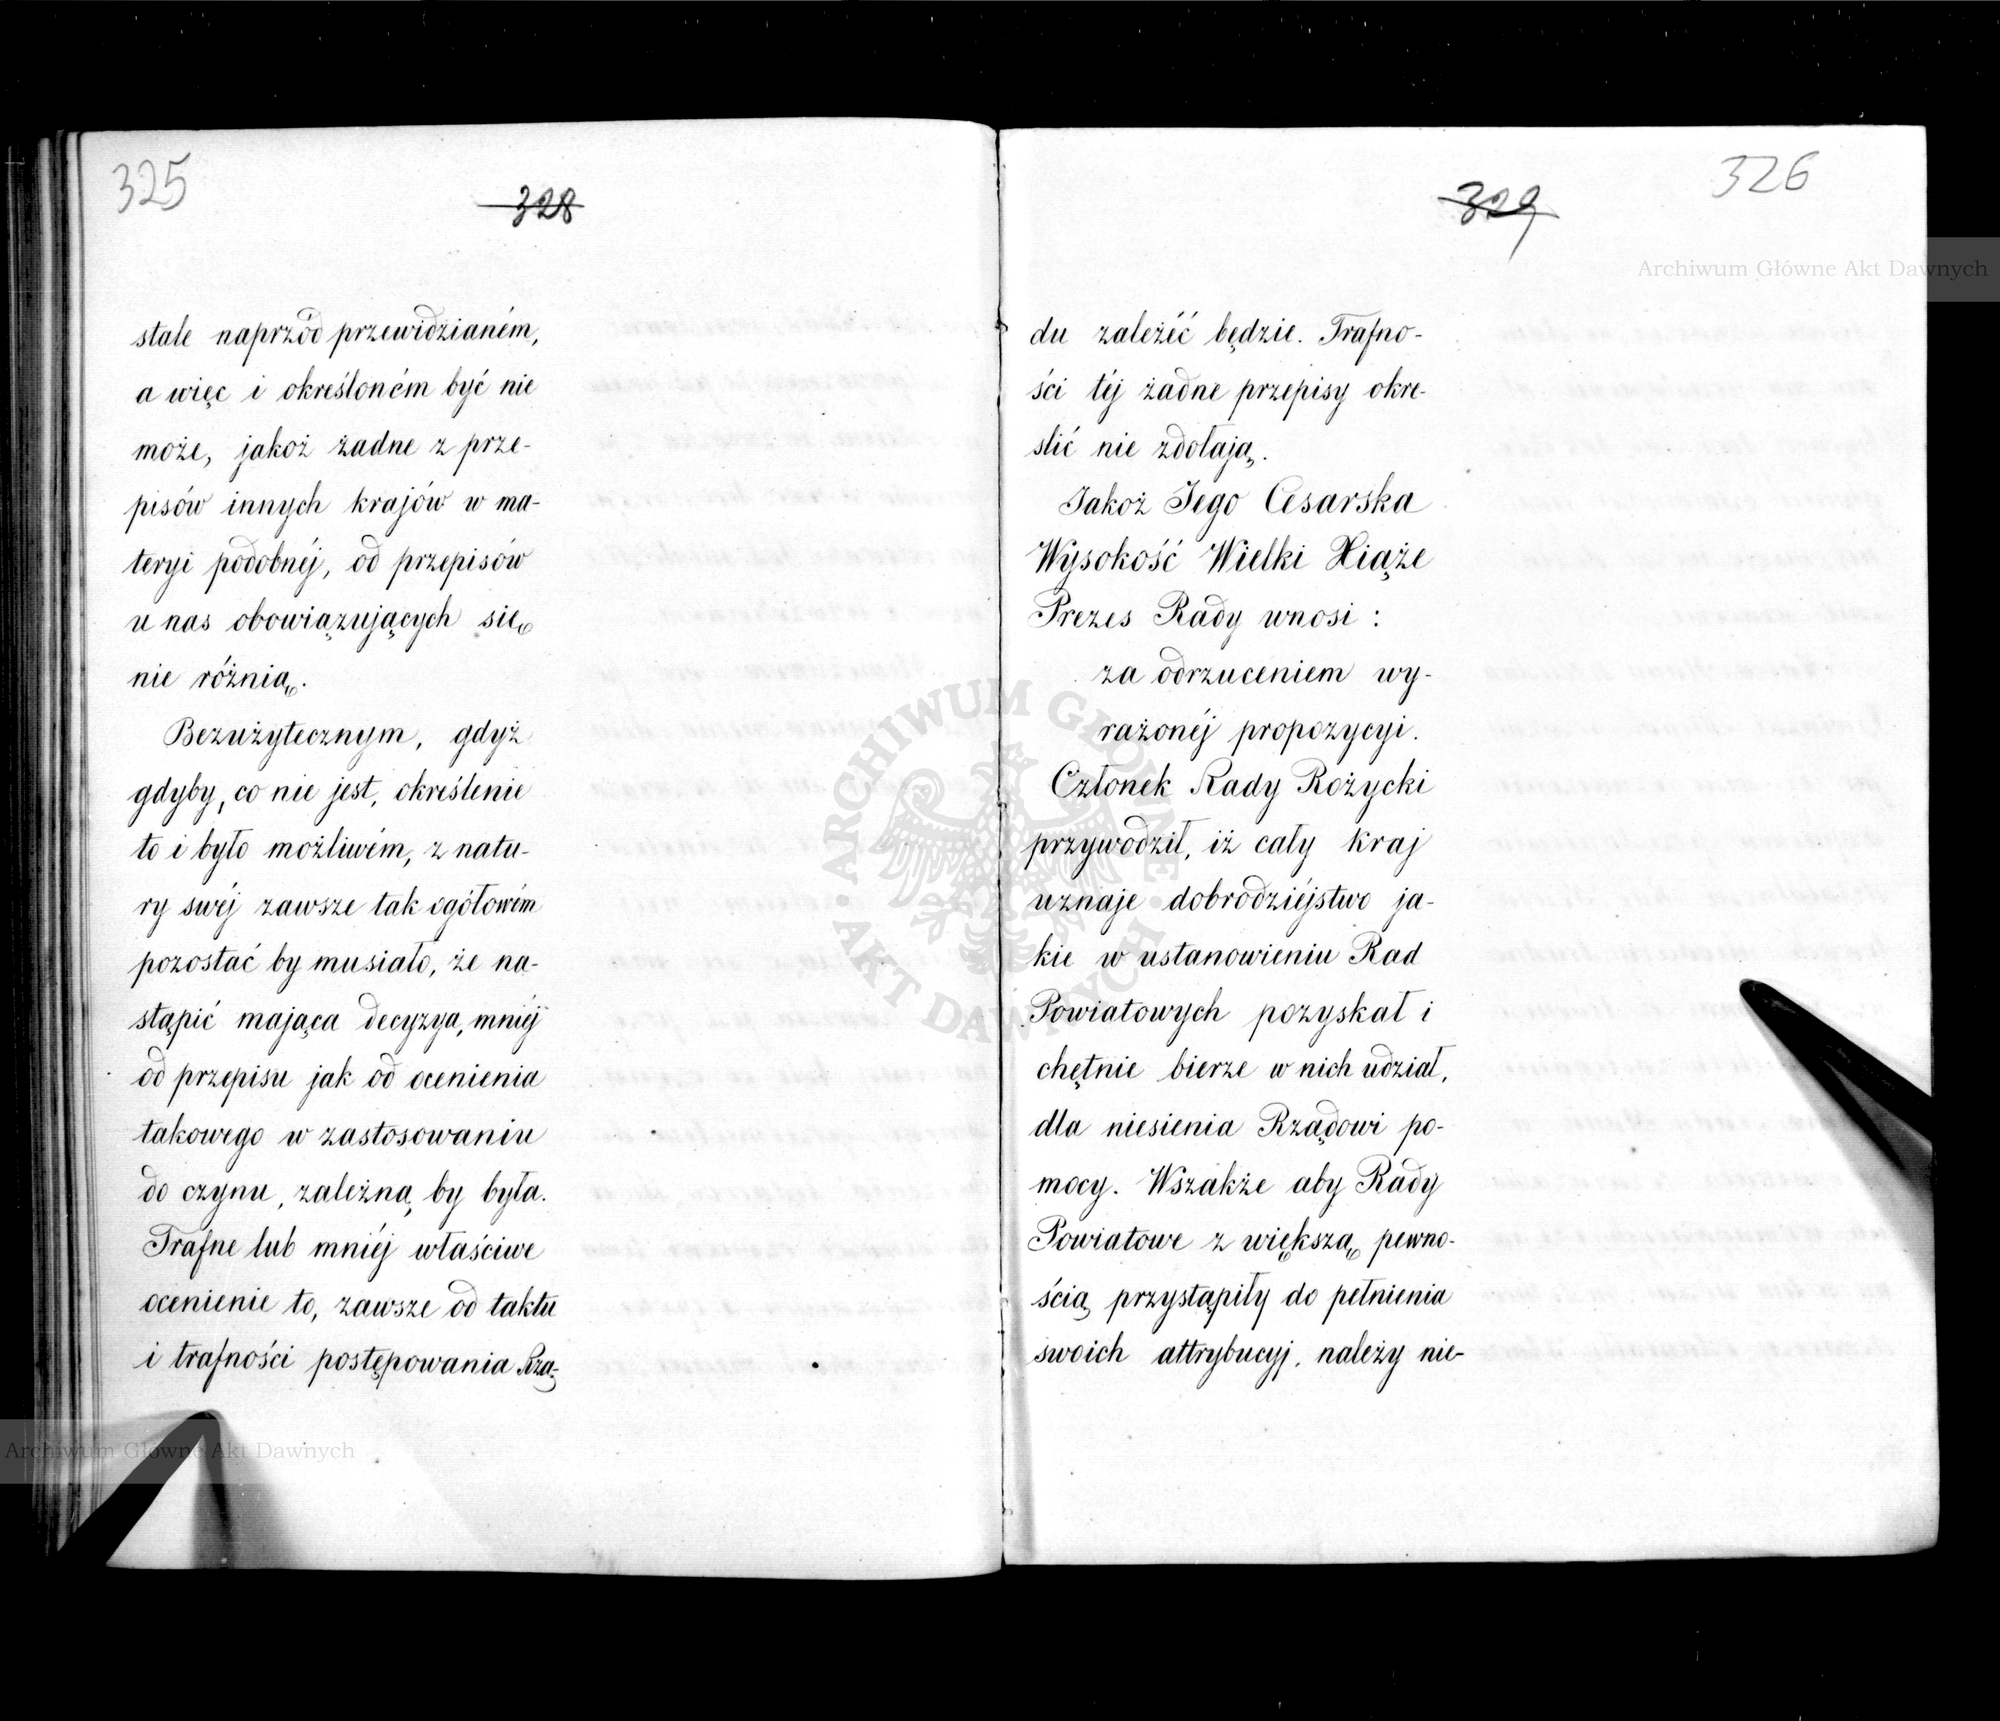 325
328
stale naprzód przewidzianém,
a więc i określoném być nie
może, jakoż żadne z prze-
pisów innych krajów w ma-
teryi podobnéj, od przepisów
u nas obowiązujących się
nie różnią.
Bezużytecznym, gdyż
gdyby, co nie jest, określenie
to i było możliwém, z natu-
ry swéj zawsze tak ogółowém
pozostać by musiało, że na-
stąpić mająca decyzya, mniéj
od przepisu jak od ocenienia
takowego w zastosowaniu
do czynu, zależną by była.
Trafne lub mniéj właściwe
ocenienie to, zawsze od taktu
i trafności postępowania Rzą-
326
329
du zależéć będzie. Trafno-
ści téj żadne przepisy okre-
slić nie zdołają.
Jakoż Jego Cesarska
Wysokość Wielki Xiąże
Prezes Rady wnosi:
za odrzuceniem wy-
rażonéj propozycyi.
Członek Rady Rożycki
przywodził, iż cały kraj
uznaje dobrodziéjstwo ja-
kie w ustanowieniu Rad
Powiatowych pozyskał i
chętnie bierze w nich udział,
dla niesienia Rządowi po-
mocy. Wszakże aby Rady
Powiatowe z większą pewno-
ścią przystąpiły do pełnienia
swoich attrybucyj, należy nie-
Archiwum Główne Akt Dawnych
Archiwum Główne Akt Dawnych
ARCHIWUM GŁÓWNE AKT DAWNYCH